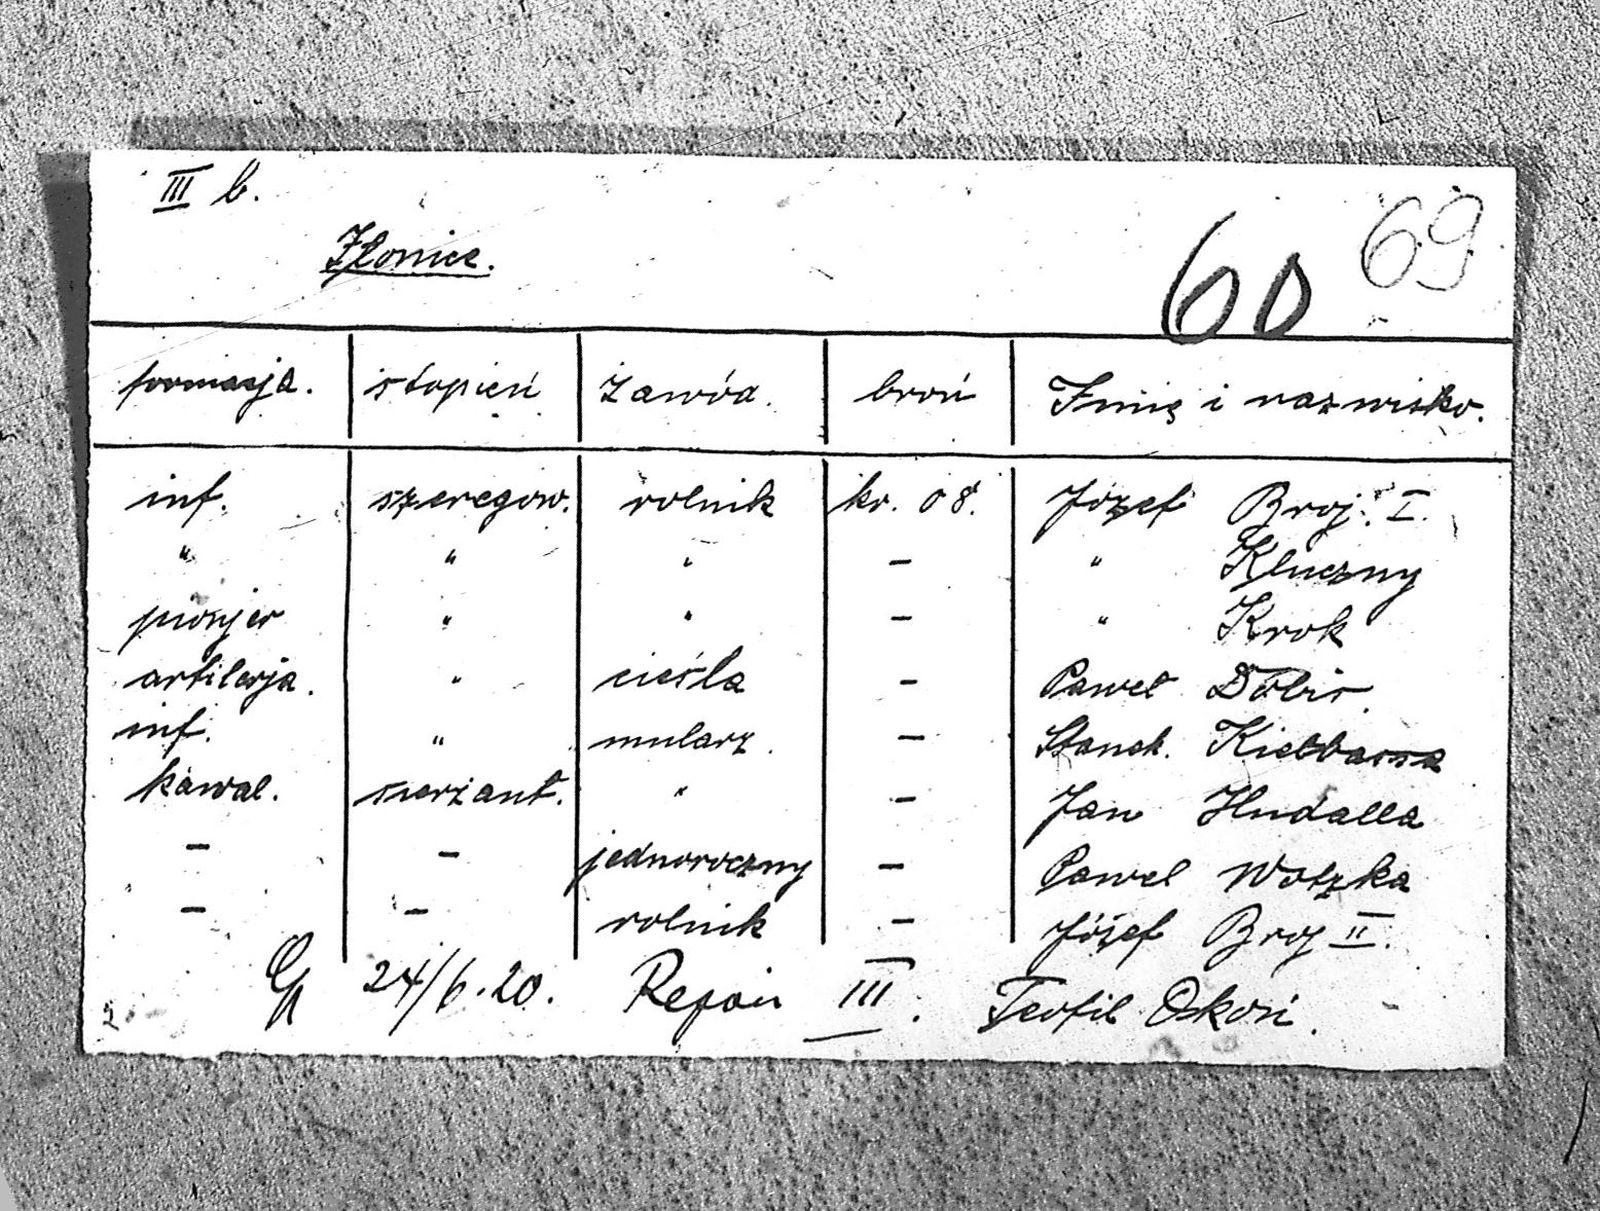 III b.
Złonice.
60 69
formacja. stopień zawód. broń Imię i nazwisko.
inf. szeregow. rolnik kr. 08. Józef Broj. I.
" " " – " Kluczny
pionjer " " – " Krok
artilerja. " cieśla – Paweł Dobis.
inf. " mularz. – Stanek. Kiełbassa
kawal. sierżant. " – Jan Hudalla
– – jednoroczny – Paweł Wotzka
– – rolnik – Józef Broj II.
24/6.20. Rejon III. Teofil Oskoń.